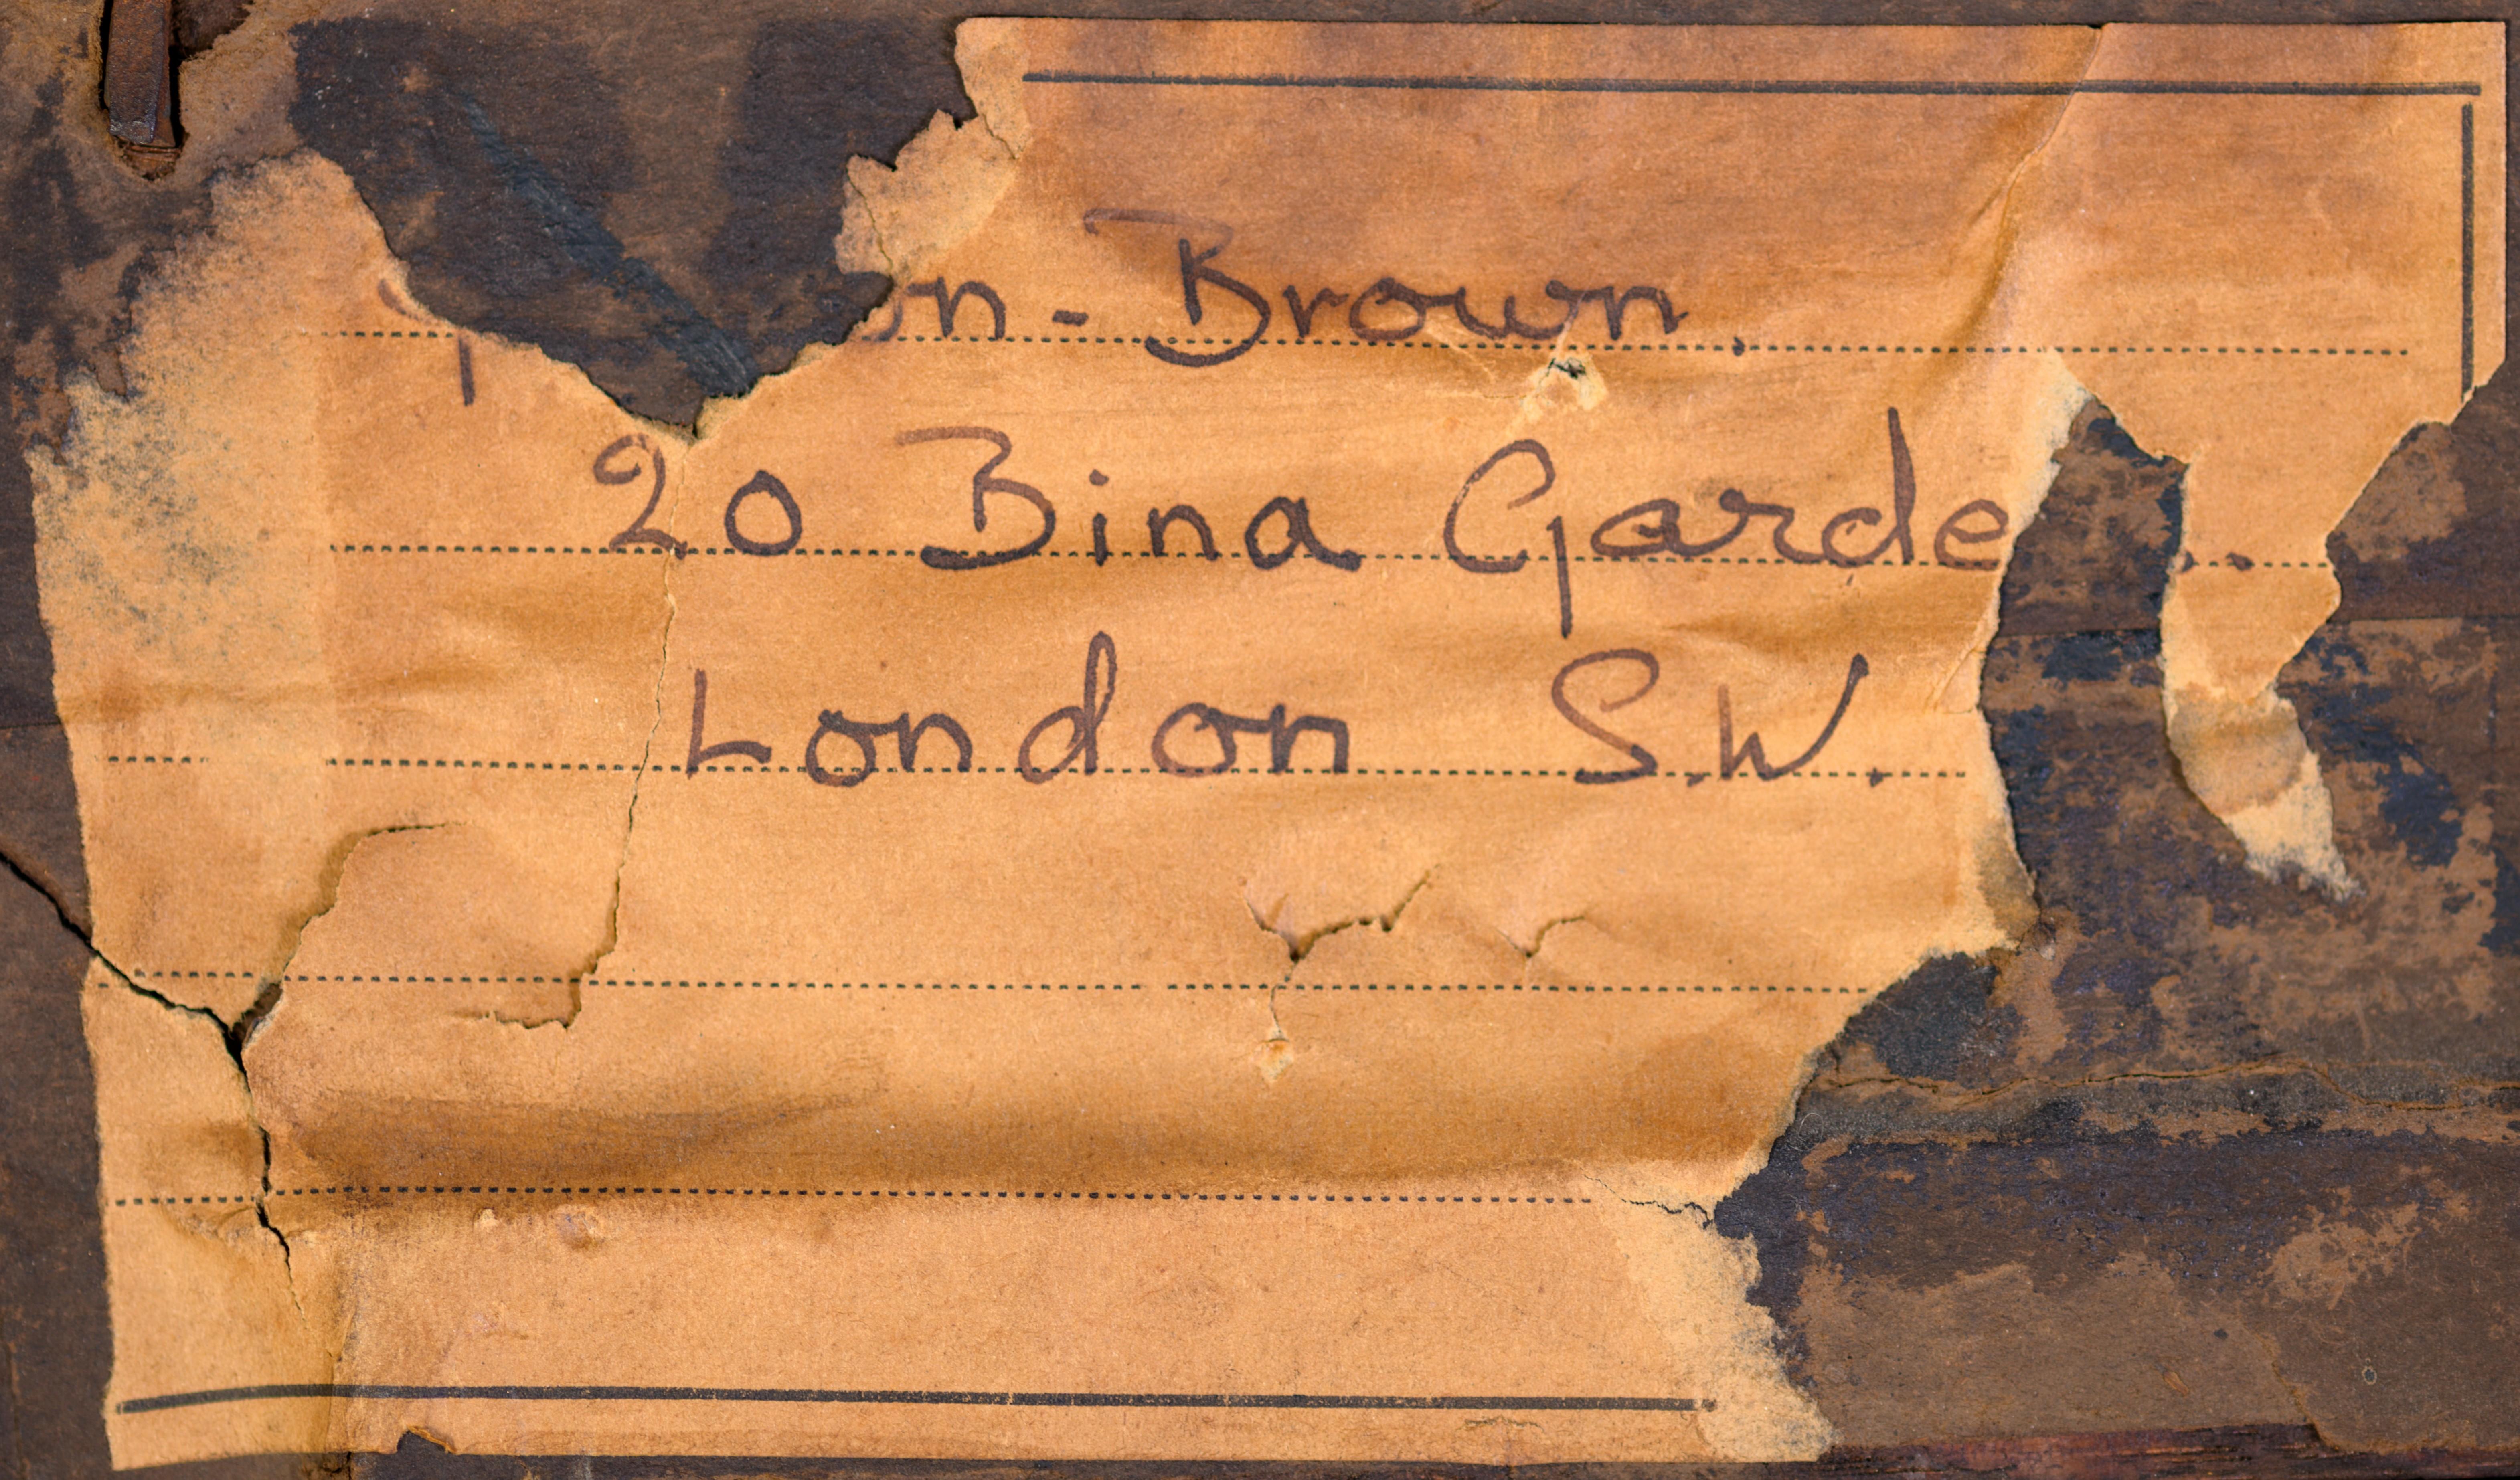 on - Brown.
20 Bina Garde
London S.W.